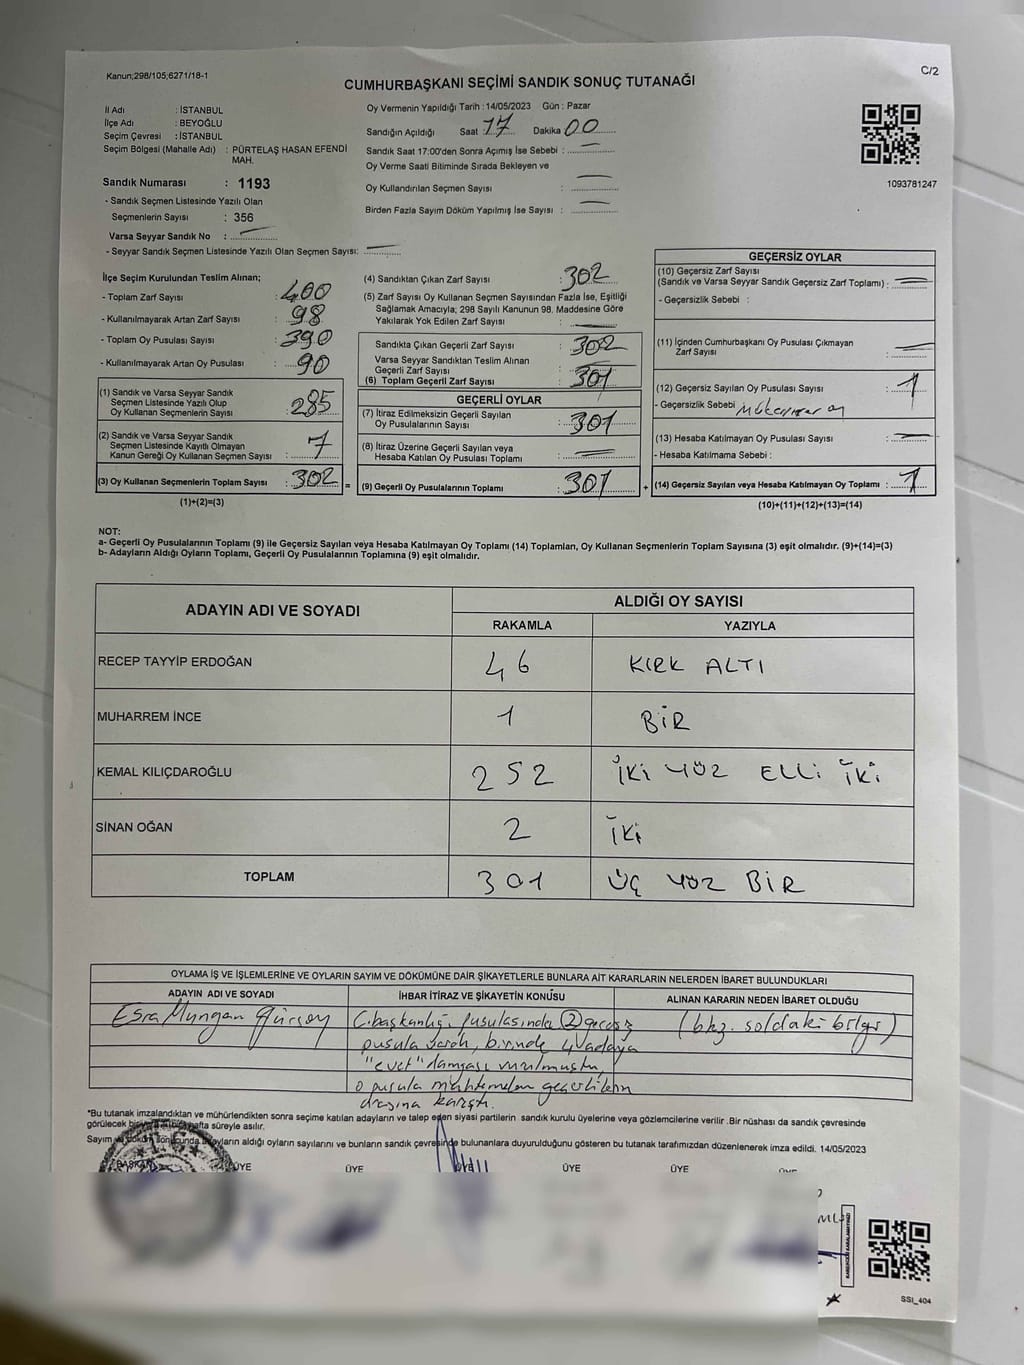 Kanun;298/105;6271/18-1
C/2
CUMHURBAŞKANI SEÇİMİ SANDIK SONUÇ TUTANAĞI
İl Adı : İSTANBUL
İlçe Adı : BEYOĞLU
Seçim Çevresi : İSTANBUL
Seçim Bölgesi (Mahalle Adı) : PÜRTELAŞ HASAN EFENDİ
MAH.
Sandık Numarası : 1193
- Sandık Seçmen Listesinde Yazılı Olan
Seçmenlerin Sayısı : 356
Varsa Seyyar Sandık No :
- Seyyar Sandık Seçmen Listesinde Yazılı Olan Seçmen Sayısı:
Oy Vermenin Yapıldığı Tarih : 14/05/2023 Gün : Pazar
Sandığın Açıldığı Saat 17 Dakika 00
Sandık Saat 17:00'den Sonra Açımış İse Sebebi :
Oy Verme Saati Bitiminde Sırada Bekleyen ve
Oy Kullandırılan Seçmen Sayısı :
Birden Fazla Sayım Döküm Yapılmış İse Sayısı :
1093781247
İlçe Seçim Kurulundan Teslim Alınan;
- Toplam Zarf Sayısı : 400
- Kullanılmayarak Artan Zarf Sayısı : 98
- Toplam Oy Pusulası Sayısı : 390
- Kullanılmayarak Artan Oy Pusulası : 90
(1) Sandık ve Varsa Seyyar Sandık
Seçmen Listesinde Yazılı Olup
Oy Kullanan Seçmenlerin Sayısı : 285
(2) Sandık ve Varsa Seyyar Sandık
Seçmen Listesinde Kayıtlı Olmayan
Kanun Gereği Oy Kullanan Seçmen Sayısı : 7
(3) Oy Kullanan Seçmenlerin Toplam Sayısı : 302
(1)+(2)=(3)
(4) Sandıktan Çıkan Zarf Sayısı : 302
(5) Zarf Sayısı Oy Kullanan Seçmen Sayısından Fazla İse, Eşitliği
Sağlamak Amacıyla; 298 Sayılı Kanunun 98. Maddesine Göre
Yakılarak Yok Edilen Zarf Sayısı :
Sandıkta Çıkan Geçerli Zarf Sayısı : 302
Varsa Seyyar Sandıktan Teslim Alınan
Geçerli Zarf Sayısı :
(6) Toplam Geçerli Zarf Sayısı : 301
GEÇERLİ OYLAR
(7) İtiraz Edilmeksizin Geçerli Sayılan
Oy Pusulalarının Sayısı : 301
(8) İtiraz Üzerine Geçerli Sayılan veya
Hesaba Katılan Oy Pusulası Toplamı :
= (9) Geçerli Oy Pusulalarının Toplamı : 301 +
GEÇERSİZ OYLAR
(10) Geçersiz Zarf Sayısı
(Sandık ve Varsa Seyyar Sandık Geçersiz Zarf Toplamı) :
- Geçersizlik Sebebi :
(11) İçinden Cumhurbaşkanı Oy Pusulası Çıkmayan
Zarf Sayısı :
(12) Geçersiz Sayılan Oy Pusulası Sayısı : 1
- Geçersizlik Sebebi Mükerrer oy
(13) Hesaba Katılmayan Oy Pusulası Sayısı :
- Hesaba Katılmama Sebebi :
(14) Geçersiz Sayılan veya Hesaba Katılmayan Oy Toplamı : 1
(10)+(11)+(12)+(13)=(14)
NOT:
a- Geçerli Oy Pusulalarının Toplamı (9) ile Geçersiz Sayılan veya Hesaba Katılmayan Oy Toplamı (14) Toplamları, Oy Kullanan Seçmenlerin Toplam Sayısına (3) eşit olmalıdır. (9)+(14)=(3)
b- Adayların Aldığı Oyların Toplamı, Geçerli Oy Pusulalarının Toplamına (9) eşit olmalıdır.
ADAYIN ADI VE SOYADI ALDIĞI OY SAYISI
RAKAMLA YAZIYLA
RECEP TAYYİP ERDOĞAN 46 KIRK ALTI
MUHARREM İNCE 1 BİR
KEMAL KILIÇDAROĞLU 252 İKİ YÜZ ELLİ İKİ
SİNAN OĞAN 2 İKİ
TOPLAM 301 ÜÇ YÜZ BİR
OYLAMA İŞ VE İŞLEMLERİNE VE OYLARIN SAYIM VE DÖKÜMÜNE DAİR ŞİKAYETLERLE BUNLARA AİT KARARLARIN NELERDEN İBARET BULUNDUKLARI
ADAYIN ADI VE SOYADI İHBAR İTİRAZ VE ŞİKAYETİN KONUSU ALINAN KARARIN NEDEN İBARET OLDUĞU
Esra Mungan Gürsoy C.başkanlığı pusulasında 2 geçersiz (bkz. soldaki bilgi)
pusula vardı, birinde 4 adaya
"evet" damgası vurulmuştu,
o pusula muhtemelen geçerlilerin
arasına karıştı.
*Bu tutanak imzalandıktan ve mühürlendikten sonra seçime katılan adayların ve talep eden siyasi partilerin sandık kurulu üyelerine veya gözlemcilerine verilir. Bir nüshası da sandık çevresinde
görülecek bir yere bir hafta süreyle asılır.
Sayım ve döküm sonucunda adayların aldığı oyların sayılarını ve bunların sandık çevresinde bulunanlara duyurulduğunu gösteren bu tutanak tarafımızdan düzenlenerek imza edildi. 14/05/2023
BAŞKAN ÜYE ÜYE ÜYE ÜYE ÜYE
SSI_404